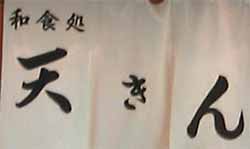 和食処
天きん